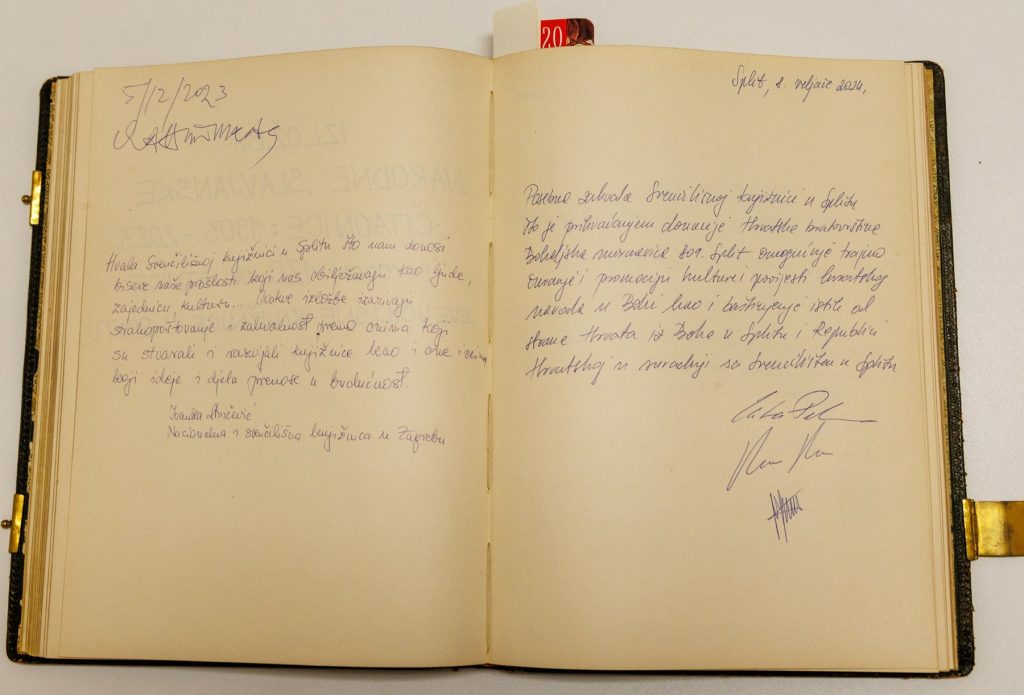 5/12/2023
Hvala Sveučilišnoj knjižnici u Splitu što nam donosi
bisere naše prošlosti koji nas obilježavaju kao ljude,
zajednicu, kulturu... Ovakve izložbe izazivaju
strahopoštovanje i zahvalnost prema onima koji
su stvarali i razvijali knjižnice kao i one i
koji ideje i djela prenose u budućnost.
Ivanka
Nacionalna i sveučilišna knjižnica u Zagrebu
20
Split, 8. veljače 2024.
Posebna zahvala Sveučilišnoj knjižnici u Splitu
što je prihvaćanjem donacije Hrvatske bratovštine
Bokeljska mornarica 809. Split omogućuje trajno
čuvanje i promociju kulture i povijesti hrvatskog
naroda u Boki kao i baštinjenje istih od
strane Hrvata iz Boke u Splitu i Republici
Hrvatskoj u suradnji sa Sveučilištem u Splitu
IZLOŽBA
NARODNE SLAVJANSKE
ČITAONICE: 1903